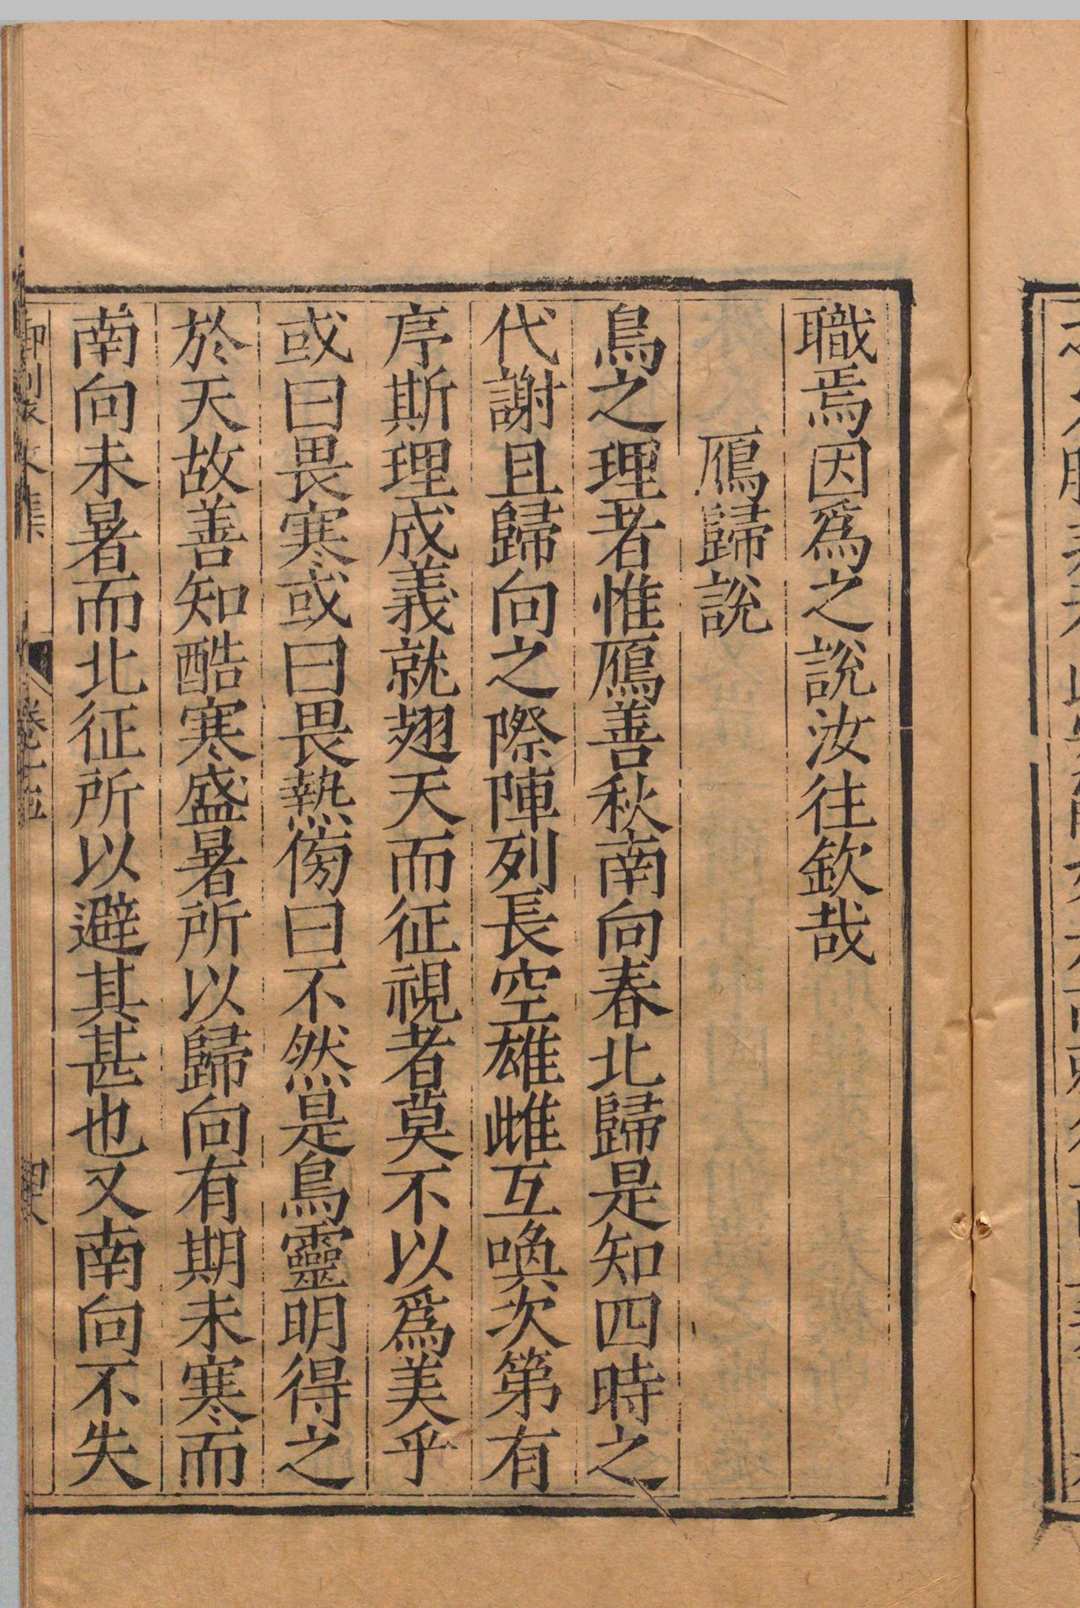 職焉因爲之說汝往欽哉
鴈歸說
鳥之理者惟鴈善秋南向春北歸是知四時之
代謝且歸向之際陣列長空雄雌互喚次第有
序斯理成義就翅天而征視者莫不以爲美乎
或曰畏寒或曰畏熱傍曰不然是鳥靈明得之
於天故善知酷寒盛暑所以歸向有期未寒而
南向未暑而北征所以避其甚也又南向不失